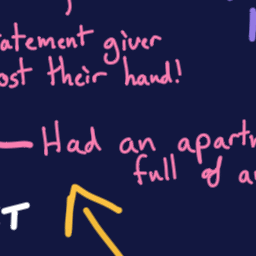 atement giver
ost their hand!
Had an apartm
full of a
T